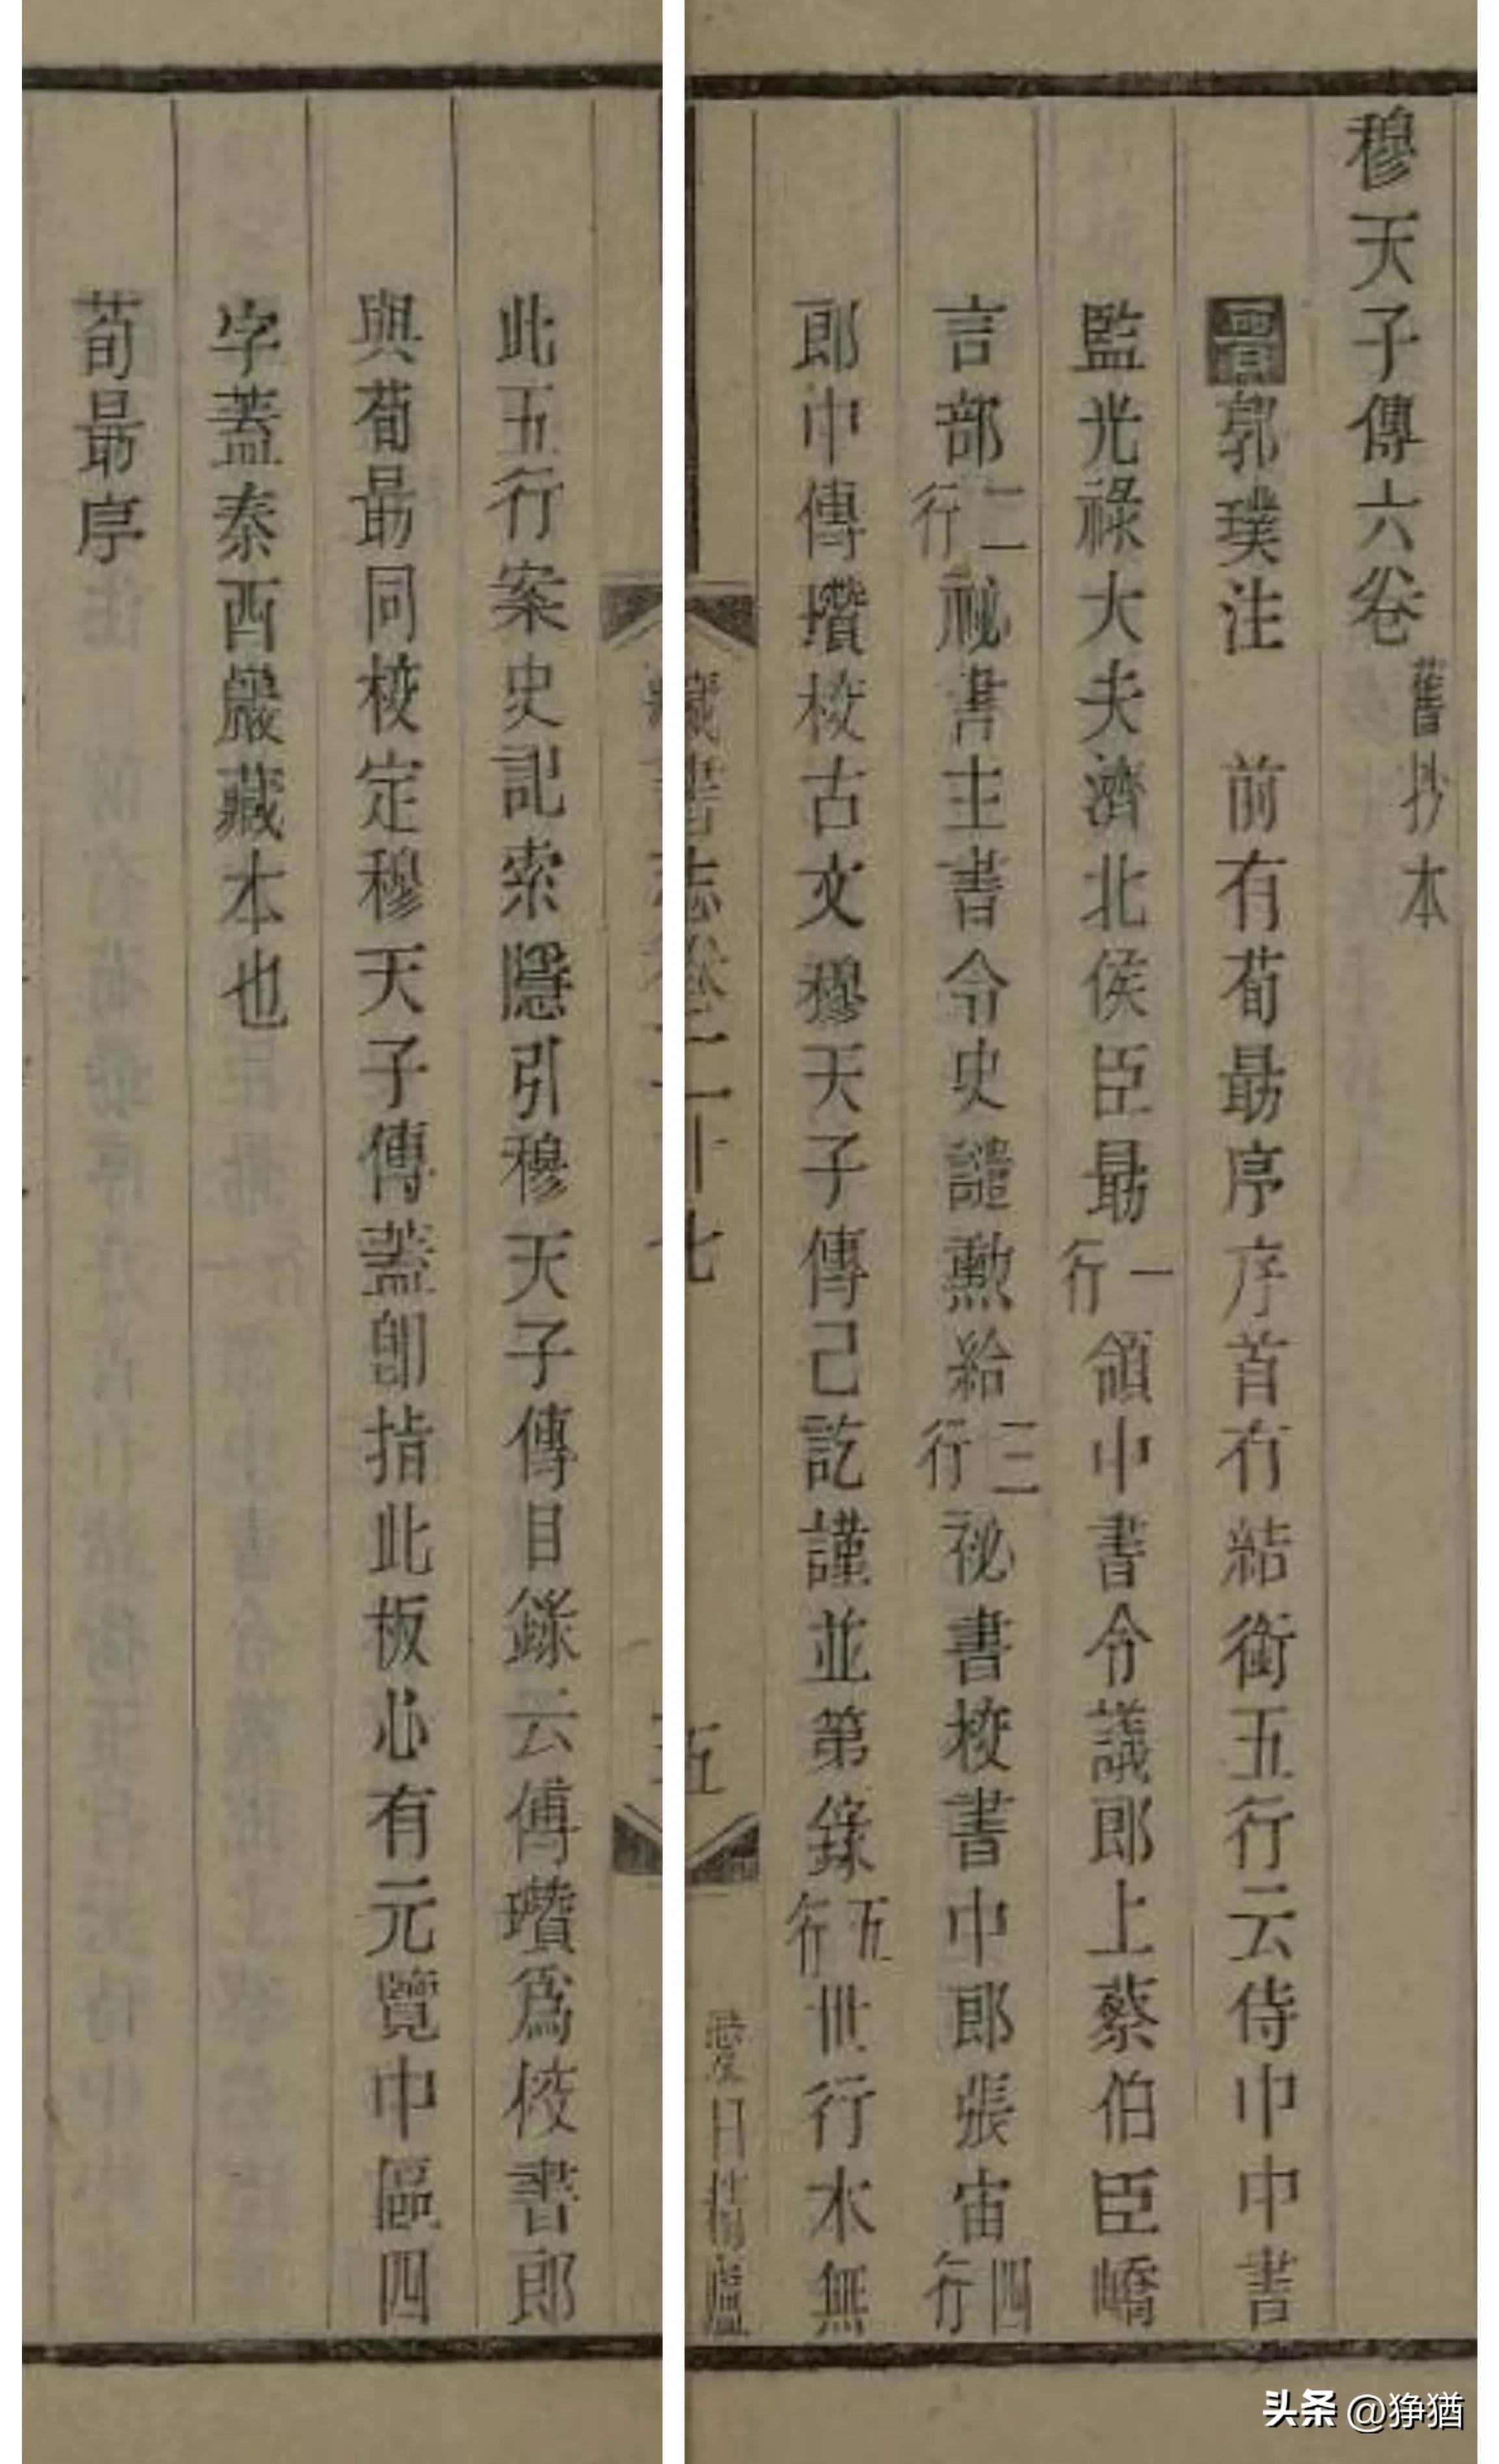 穆天子傳六卷舊抄本
晉郭璞注　前有荀勗序序首有結銜五行云侍中中書
監光祿大夫濟北侯臣勗一行領中書令議郎上蔡伯臣嶠
言部二行祕書主書令史譴勲給三行祕書校書中郎張宙四行
郎中傳瓚校古文穆天子傳已訖謹並第錄五行世行本無
藏書志卷二十七
五
愛日精廬
此五行案史記索隱引穆天子傳目錄云傅瓚爲校書郎
與荀勗同校定穆天子傳蓋卽指此板心有元覽中區四
字蓋泰西巖藏本也
荀勗序
头条 @狰猶